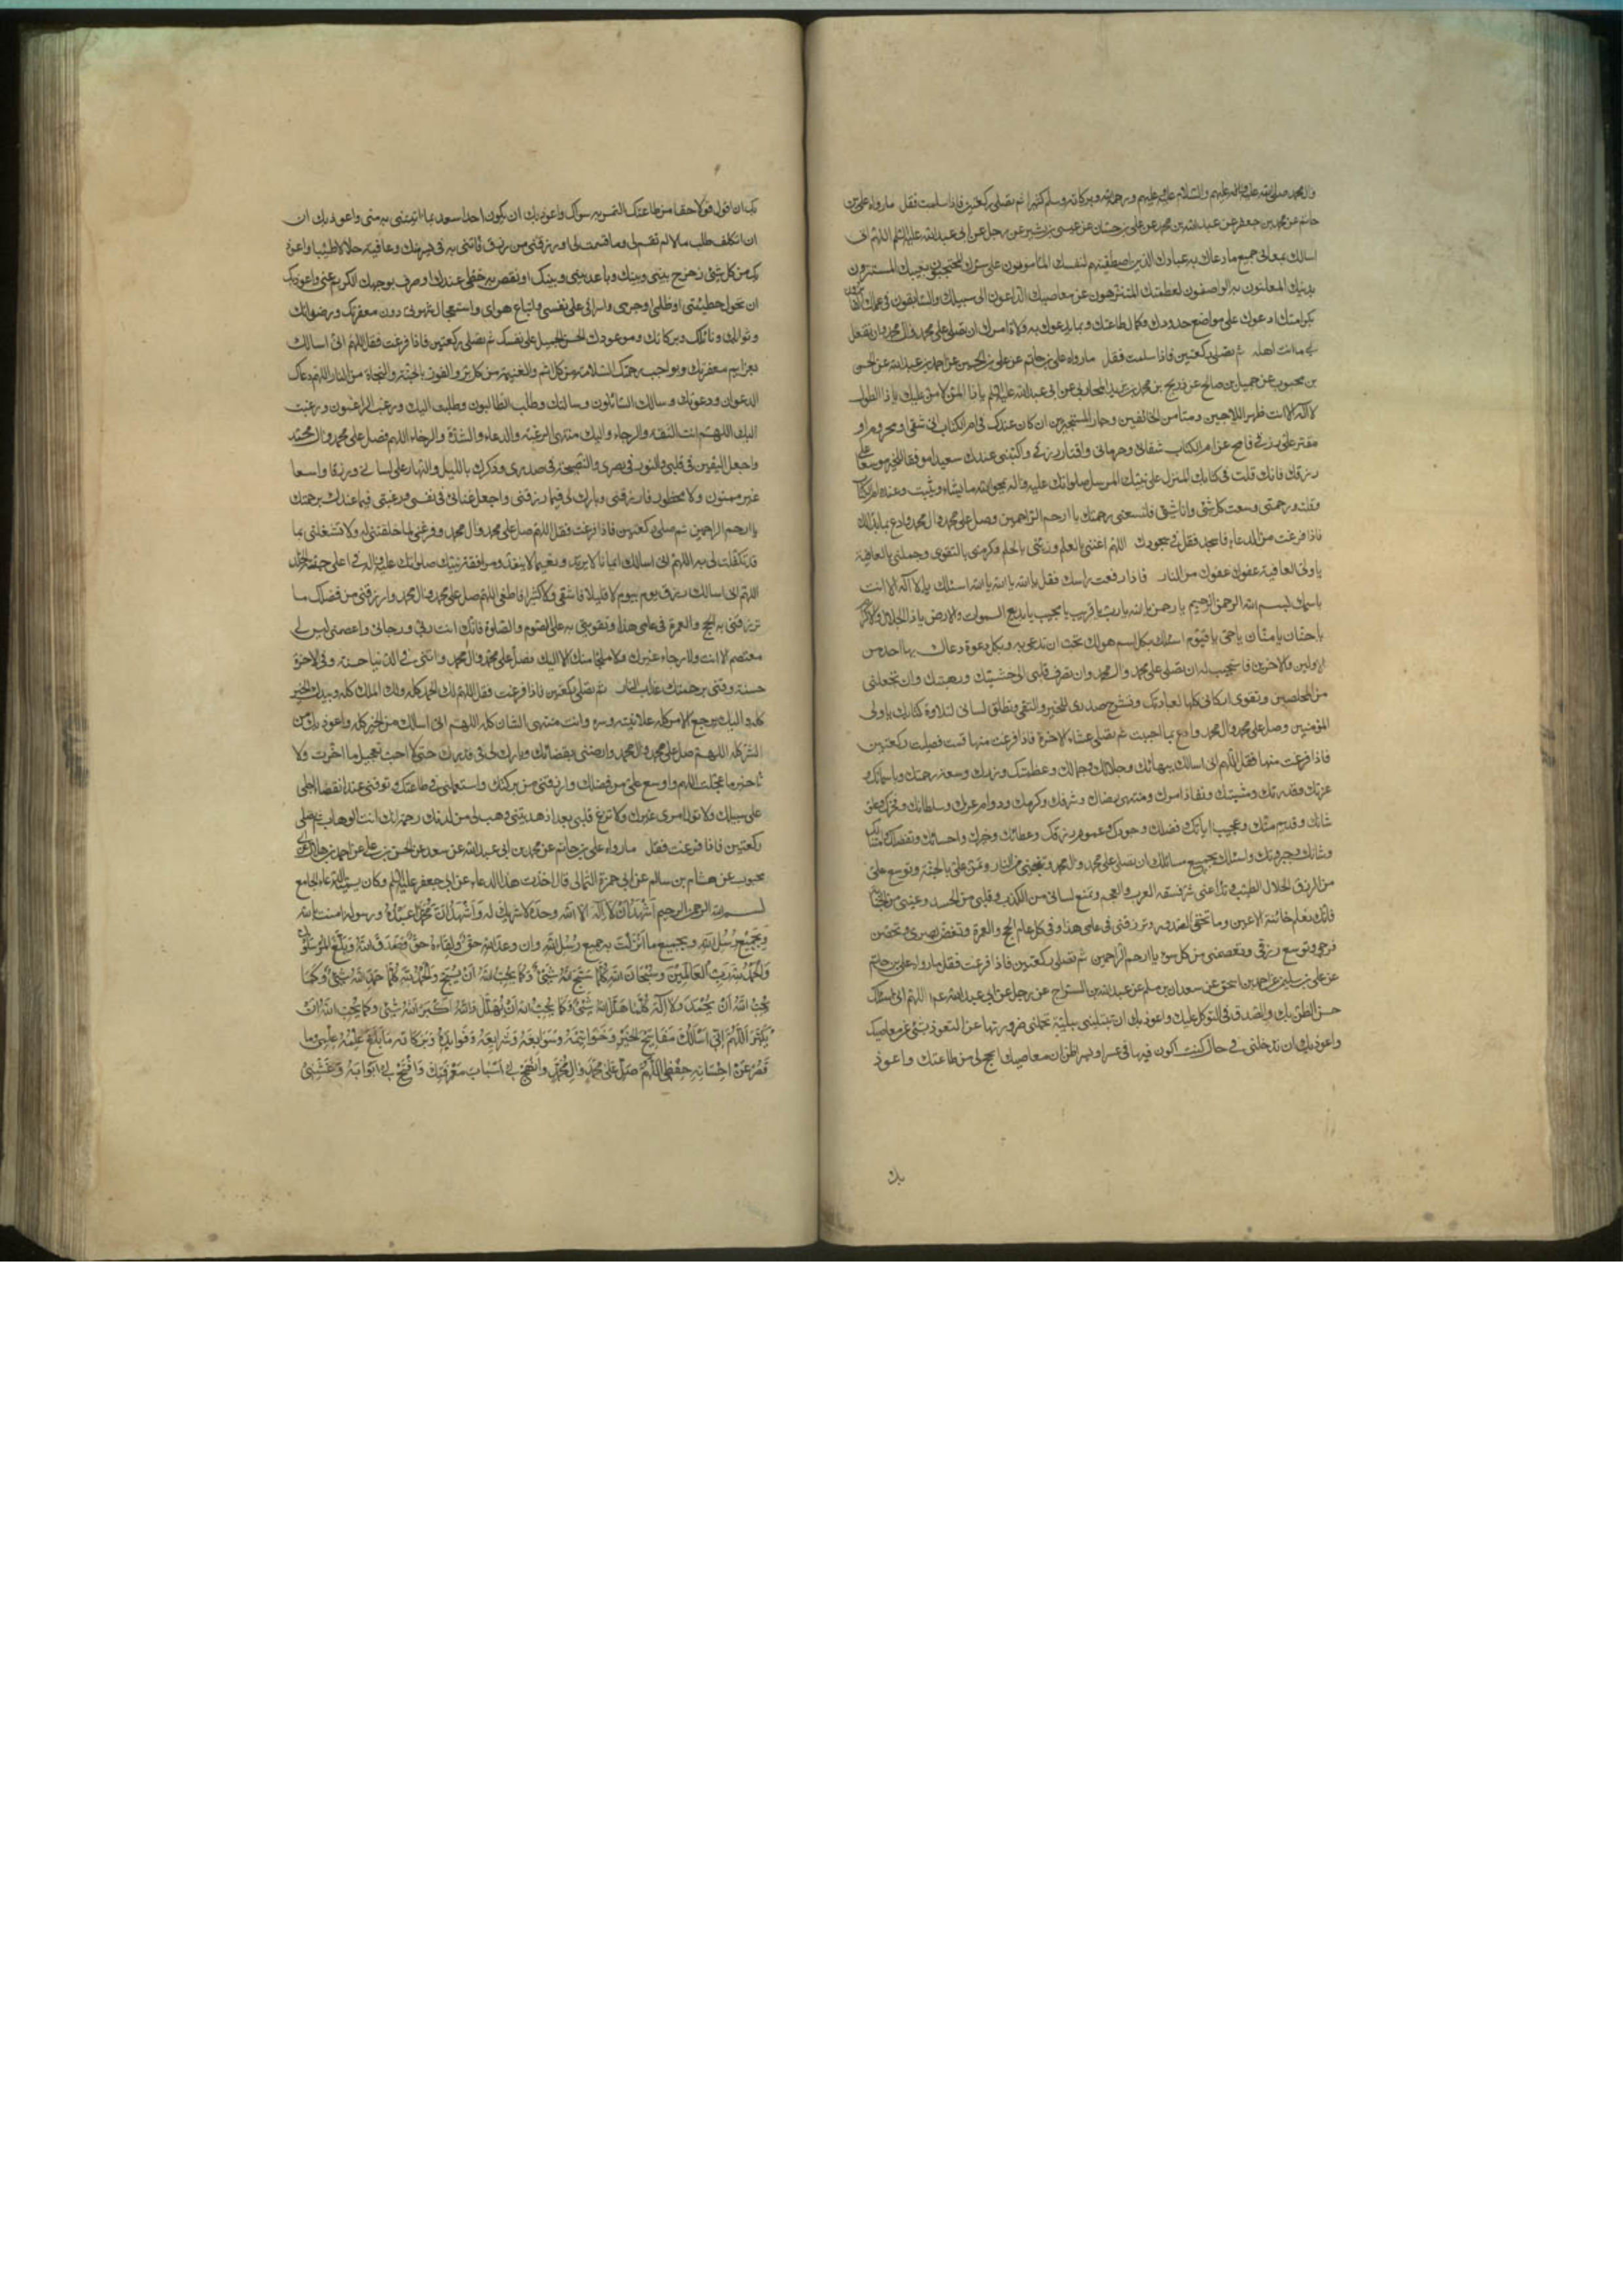 وال محمد صلى الله عليه وعليهم والسلام عليه وعليهم ورحمة الله وبركاته وسلم كثيرا ثم تصلى ركعتين فاذا سلمت فقل ما رواه على بن
حاتم عن محمد بن جعفر عن عبد الله بن محمد عن على بن حسان عن عيسى بن بشير عن رجل عن ابى عبد الله عليه السلم اللهم انى
اسالك بمعانى جميع ما دعاك به عبادك الذين اصطفيتهم لنفسك المأمونون على سرك المحتجبون بغيبك المستترون
بدينك المعلنون به الواصفون لعظمتك المتنزهون عن معاصيك الداعون الى سبيلك والسابقون فى علمك الفائزون
بكرامتك ادعوك على مواضع حدودك وكمال طاعتك وبما يدعوك به ولاة امرك ان تصلى على محمد وال محمد وان تفعل
بى ما انت اهله ثم تصلى ركعتين فاذا سلمت فقل ما رواه على بن حاتم عن على بن الحسين عن احمد بن عبد الله عن الحسن
بن محبوب عن جميل بن صالح عن ذريح بن محمد بن يزيد المحاربى عن ابى عبد الله عليه السلم يا ذا المن لا من عليك يا ذا الطول
لا اله الا انت ظهر اللاجين ومأمن الخائفين وجار المستجيرين ان كان عندك فى ام الكتاب انى شقى او محروم او
مقتر على رزقى فامح عن ام الكتاب شقائى وحرمانى واقتار رزقى واكتبنى عندك سعيدا موفقا للخير موسعا على
رزقك فانك قلت فى كتابك المنزل على نبيك المرسل صلواتك عليه واله يمحو الله ما يشاء ويثبت وعنده ام الكتاب
وقلت ورحمتى وسعت كل شئ وانا شئ فلتسعنى رحمتك يا ارحم الراحمين وصل على محمد وال محمد وادع بما بدا لك
فاذا فرغت من الدعاء فاسجد فقل فى سجودك اللهم اغننى بالعلم وزينى بالحلم وكرمنى بالتقوى وجملنى بالعافية
يا ولى العافية عفوك عفوك من النار فاذا رفعت راسك فقل يا الله يا الله يا الله اسئلك بلا اله الا انت
باسمك بسم الله الرحمن الرحيم يا رحمن يا الله يا رب يا قريب يا مجيب يا بديع السموات والارض يا ذا الجلال والاكرام
يا حنان يا منان يا حى يا قيوم اسئلك بكل اسم هو لك تحب ان تدعى به وبكل دعوة دعاك بها احد من
الاولين والاخرين فاستجيب له ان تصلى على محمد وال محمد وان تصرف قلبى الى خشيتك ورهبتك وان تجعلنى
من المخلصين وتقوى اركانى كلها لعبادتك وتشرح صدرى للخير والتقى وتطلق لسانى لتلاوة كتابك يا ولى
المؤمنين وصل على محمد وال محمد وادع بما احببت ثم تصلى عشاء الاخرة فاذا فرغت منها قمت فصليت ركعتين
فاذا فرغت منها فقل اللهم انى اسالك ببهائك وجلالك وجمالك وعظمتك ونورك وسعة رحمتك وباسمائك و
عزتك وقدرتك ومشيتك ونفاذ امرك ومنتهى رضاك وشرفك وكرمك ودوام عزك وسلطانك وفخرك وعلو
شانك وقديم منك وعجيب اياتك وفضلك وجودك وعموم رزقك وعطائك وخيرك واحسانك وتفضلك وامتنانك
وشانك وجبروتك واسئلك بجميع مسائلك ان تصلى على محمد وال محمد وتنجينى من النار وتمن على بالجنة وتوسع على
من الرزق الحلال الطيب وتدرأ عنى شر فسقة العرب والعجم وتمنع لسانى من الكذب وقلبى من الحسد وعينى من الخيانة
فانك تعلم خائنة الاعين وما تخفى الصدور وترزقنى فى عامى هذا وفى كل عام الحج والعمرة وتغض بصرى وتحصن
فرجى وتوسع رزقى وتعصمنى من كل سوء يا ارحم الراحمين ثم تصلى ركعتين فاذا فرغت فقل ما رواه على بن حاتم
عن على بن سليم عن احمد بن اسحق عن سعدان بن مسلم عن عبد الله بن السراج عن رجل عن ابى عبد الله ع م اللهم انى اسئلك
حسن الظن بك والصدق فى التوكل عليك واعوذ بك ان تبتلينى ببلية تحملنى ضرورتها على التعوذ بشئ من معاصيك
واعوذ بك ان تدخلنى فى حال كنت اكون فيها فى عسر او يسر اظن ان معاصيك انجح لى من طاعتك واعوذ
بك
بك ان اقول قولا حقا من طاعتك التمس به سواك واعوذ بك ان يكون احدا سعد بما اتيتنى به منى واعوذ بك ان
ان اتكلف طلب ما لم تقسم لى وما قسمت لى او رزقتنى من رزق فاتنى به فى يسر منك وعافية حلالا طيبا واعوذ
بك من كل شئ زحزح بينى وبينك وباعد بينى وبينك او نقص به حظى عندك او صرف بوجهك الكريم عنى واعوذ بك
ان تحول خطيئتى او ظلمى او جرمى واسرافى على نفسى واتباع هواى واستعجال شهوتى دون مغفرتك ورضوانك
وثوابك ونائلك وبركاتك وموعودك الحسن الجميل على نفسك ثم تصلى ركعتين فاذا فرغت فقل اللهم انى اسالك
بعزايم مغفرتك وبواجب رحمتك السلامة من كل اثم والغنيمة من كل بر والفوز بالجنة والنجاة من النار اللهم دعاك
الداعون ودعوتك وسالك السائلون وسالتك وطلب الطالبون وطلبت اليك ورغب الراغبون ورغبت
اليك اللهم انت الثقة والرجاء واليك منتهى الرغبة والدعاء والشدة والرخاء اللهم فصل على محمد وال محمد
واجعل اليقين فى قلبى والنور فى بصرى والنصيحة فى صدرى وذكرك بالليل والنهار على لسانى ورزقا واسعا
غير ممنون ولا محظور فارزقنى وبارك لى فيما رزقتنى واجعل غنائى فى نفسى ورغبتى فيما عندك برحمتك
يا ارحم الراحمين ثم صلى ركعتين فاذا فرغت فقل اللهم صل على محمد وال محمد وفرغنى لما خلقتنى له ولا تشغلنى بما
قد تكفلت لى به اللهم انى اسالك ايمانا لا يرتد ونعيما لا ينفد ومرافقة نبيك صلواتك عليه واله فى اعلى جنة الخلد
اللهم انى اسالك رزق يوم بيوم لا قليلا فاشقى ولا كثيرا فاطغى اللهم صل على محمد وال محمد وارزقنى من فضلك ما
ترزقنى به الحج والعمرة فى عامى هذا وتقوينى به على الصوم والصلوة فانك انت ربى ورجائى وعصمتى ليس لى
معتصم الا انت ولا رجاء غيرك ولا ملجأ منك الا اليك فصل على محمد وال محمد واتنى فى الدنيا حسنة وفى الاخرة
حسنة وقنى برحمتك عذاب النار ثم تصلى ركعتين فاذا فرغت فقل اللهم لك الحمد كله ولك الملك كله وبيدك الخير
كله واليك يرجع الامر كله علانيته وسره وانت منتهى الشان كله اللهم انى اسالك من الخير كله واعوذ بك من
الشر كله اللهم صل على محمد وال محمد وارضنى بقضائك وبارك لى فى قدرك حتى لا احب تعجيل ما اخرت ولا
تاخير ما عجلت اللهم واوسع على من فضلك وارزقنى من بركتك واستعملنى فى طاعتك وتوفنى عند انقضاء اجلى
على سبيلك ولا تول امرى غيرك ولا تزغ قلبى بعد اذ هديتنى وهب لى من لدنك رحمة انك انت الوهاب ثم صلى
ركعتين فاذا فرغت فقل ما رواه على بن حاتم عن محمد بن ابى عبد الله عن سعد عن الحسن بن على عن احمد بن هلال عن
محبوب عن هشام بن سالم عن ابى حمزة الثمالى قال اخذت هذا الدعاء عن ابى جعفر عليه السلم وكان يسميه الدعاء الجامع
بسم الله الرحمن الرحيم اشهد ان لا اله الا الله وحده لا شريك له واشهد ان محمدا عبده ورسوله امنت بالله
وبجميع رسل الله وبجميع ما انزلت به جميع رسل الله وان وعد الله حق ولقاءه حق وصدق الله وبلغ المرسلون
والحمد لله رب العالمين وسبحان الله كلما سبح الله شئ وكما يحب الله ان يسبح والحمد لله كلما حمد الله شئ وكما
يحب الله ان يحمد ولا اله الا الله كلما هلل الله شئ وكما يحب الله ان يهلل والله اكبر كلما كبر الله شئ وكما يحب الله ان
يكبر اللهم انى اسئلك مفاتيح الخير وخواتيمه وسوابغه وشرايعه وفوايده وبركاته ما بلغ علمه علمى وما
قصر عن احصائه حفظى اللهم صل على محمد وال محمد وانهج لى اسباب معرفتك وافتح لى ابوابه وغشنى